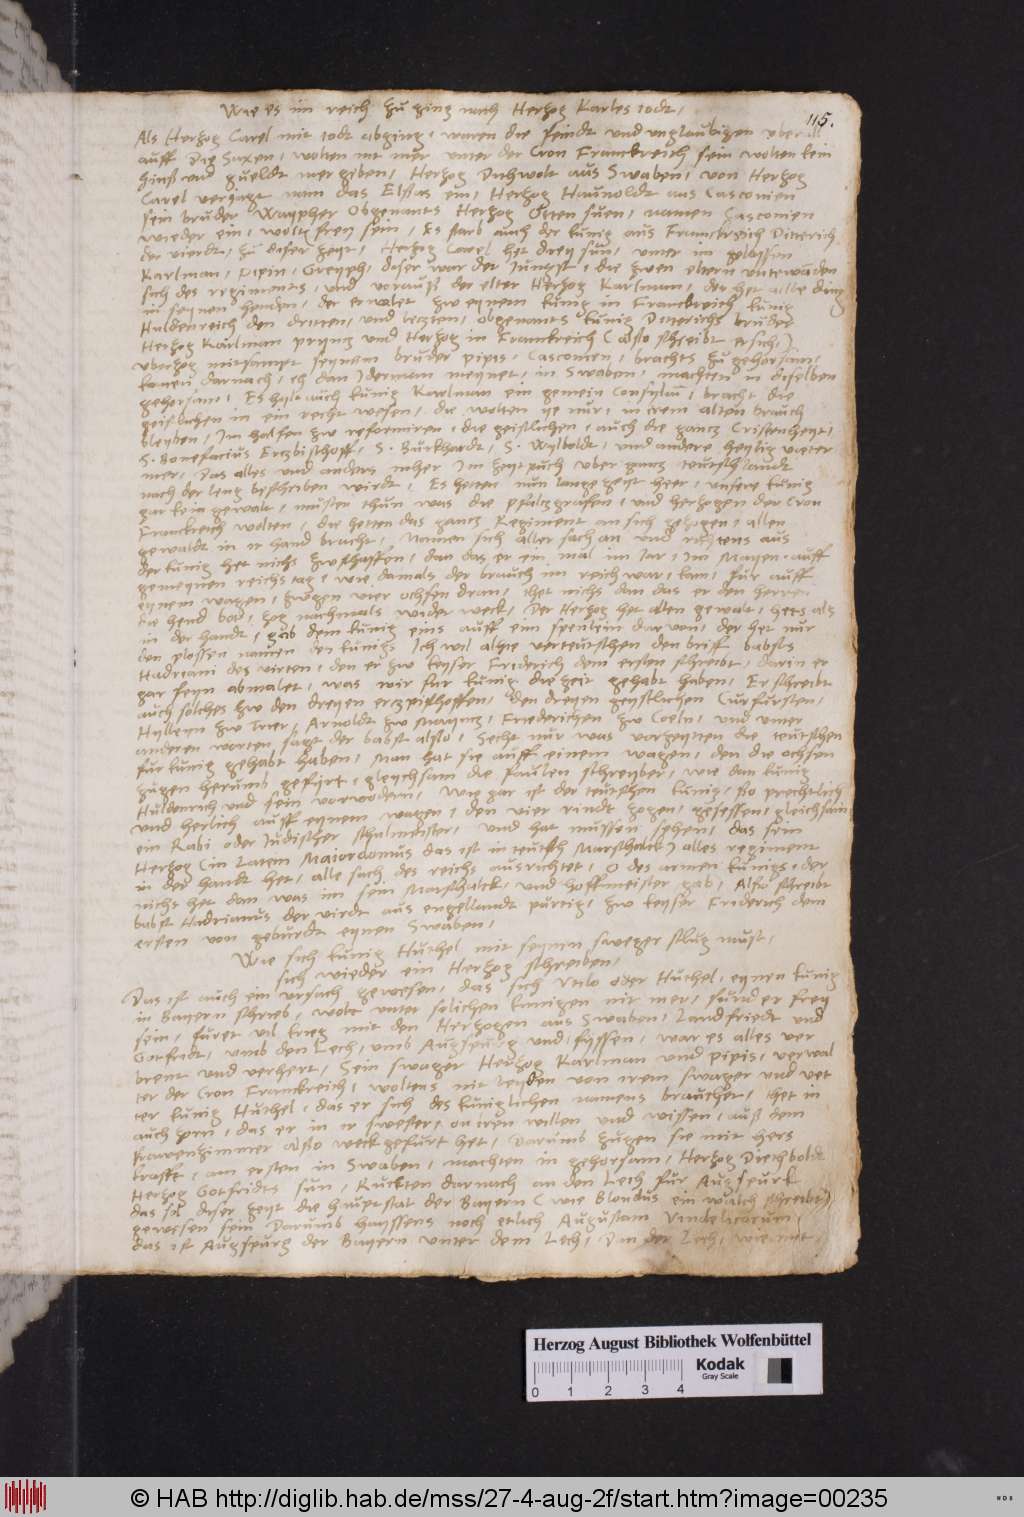 Wie es im reich zu ging nach Hertzog Karles todt,
115.
Als Hertzog Carel mit todt abging, waren die feindt und unglaubigen uberal
auff Die Saxen, wolten nit mer unter der Cron Franckreich sein wolten kein
Zinß und gueldt mer geben, Hertzog Dichwolt aus Swaben, von Hertzog
Carel veriagt nam das Elsas ein, Hertzog Haunoldt aus Casconien
sein bruder Waypher Obgenants Hertzog Otten süen, namen Casconien
wieder ein, wolt frey sein, Es starb auch der kunig aus Franckreich Ditterich
der vierdt, zu diser zeyt, Hertzog Carel het drey sun, unter im gelassen
Karlman, Pipin, Greyph, diser war der Jungst, die zwen eltern unterwunden
sich des regiments, und voraus der elter Hertzog Karlman, der het alle ding
in seynen henden, der erwalet zw eynem kunig in Franckreich kunig
Huldenreich den dritten, und letzten, obgenants kunig Ditterichs bruder
Hertzog Karlman pryncz und Hertzog in Franckreich (also schreibt er sich)
uberzog mitsampt seynem bruder pipis, Casconien, brachts zu gehorsam,
kamen darnach, eh dan Jderman meynet, in Swaben, machten in dieselben
gehorsam, Es hylt auch kunig Karlman ein gemein Consylium, bracht die
geistlichen in ein recht wesen, die wolten ye nur, in irem alten brauch
bleyben, Im halfen zw reformiren, die geistlichen, auch die gancz Cristenheyt,
S. Bonefacius Erczbischoff, S. Burkhardt, S. Wylboldt, und andere heylig vaeter
mer, Das alles und anders mher Im zeytpuch uber gancz teutschlandt
nach der leng beschriben wirdt, Es hetten nun lange zeyt heer, unsere kunig
gar kein gewalt, musten thun was die pfalczgrafen, und herzogen der Cron
Franckreich wolten, die hetten das gancz Regiment an sich gezogen, allen
gewaldt in ir hand bracht, Namen sich aller sach an und ristens aus
der kunig het nichs zwschaffen, dan das er ein mal im Jar, Im Mayen auff
gemeynen reichs tag, wie damals der brauch im reich war, kam, fur auff
eynem wagen, zugen vier ochsen dran, thet nichs dan das er den herren
die hend bot, zog nachmals wider weck, Der Herzog het allen gewalt, hets als
in der handt, gab dem kunig eins auff ein spentein darvon, der het nur
den plossen namen des kunigs Ich wil alhie verteutschen den briff babsts
Hadriani des virten, den er zw keyser Friderich dem ersten schreibt, darin er
gar feyn abmalet, was wir fur kunig die zeit gehabt haben, Er schreibt
auch solches zw den dreyen erczpischoffen, den dreyen geystlichen Curfursten,
Hyllein zw Trier, Arnoldt zw Mayncz, Friederichen zw Coeln, und unter
anderen worten, sagt der babst also, Secht nur was vorzeytten die teutschen
fur kunig gehabt haben, Man hat sie auff einem wagen, den die ochsen
zugen herumb gefürt, gleychsam die faulen schreyber, wie dan kunig
Huldenrich und sein vorvodern, wie gar ist der teutschen kunig, so prechtlich
und herlich auff eynem wagen, den vier rindt zogen, gesessen, gleichsam
ein Rabi oder Judischer schulmeister, und hat mussen sehen, das sein
Herzog (in Latein Maiordomus das ist in teutsch Marschalck) alles regiment
in der handt het, alle sach des reichs ausrichtet, O des armen kunigs, der
nichs het dan was im sein Marschalck, und hoffmeister gab, Also schreibt
babst Hadrianus der virdt aus engellandt pürtig, zw keyser Friderich dem
ersten von geburdt eynen Swaben,
Wie sich kunig Huthel mit seynen sweger schlug must,
sich wieder ein Herzog schreiben,
Das ist auch ein ursach gewesen, das sich Utilo oder Huthel, eynen kunig
in Bayern schrieb, wolt unter solichen kunigen nit mer, sunder frey
sein, füret vil krieg mit den Herzogen aus Swaben, Landfriedt und
Gotfridt, umb den Lech, umb Augspurg und füssen, war es alles ver
brent und verhert, Sein swager Herzog Karlman und pipis, verwal
ter der Cron Franckreich, woltens nit leyden von irem swager und vet
ter kunig Huthel, das er sich des kuniglichen namens brauchet, thet in
auch zorn, das er in ir swester, on iren willen und wissen, auß dem
frawenzimmer also weckgefürt het, Darumb zugen sie mit hers
krafft, am ersten in Swaben, machten in gehorsam, Herzog Diethboldt
Herzog Gotfridts sun, Ruckten darnach an den Lech für Augspurk
das zu diser zeyt die hauptstat der Bayern (wie Blondus ein walch schreibt)
gewesen sein Darumb hayssens noch etlich Augustam Vindelicorum,
das ist Augspurg der Bayern unter dem Lech, Dan der Lech,
Herzog August Bibliothek Wolfenbüttel
Kodak
Gray Scale
0 1 2 3 4
© HAB http://diglib.hab.de/mss/27-4-aug-2f/start.htm?image=00235